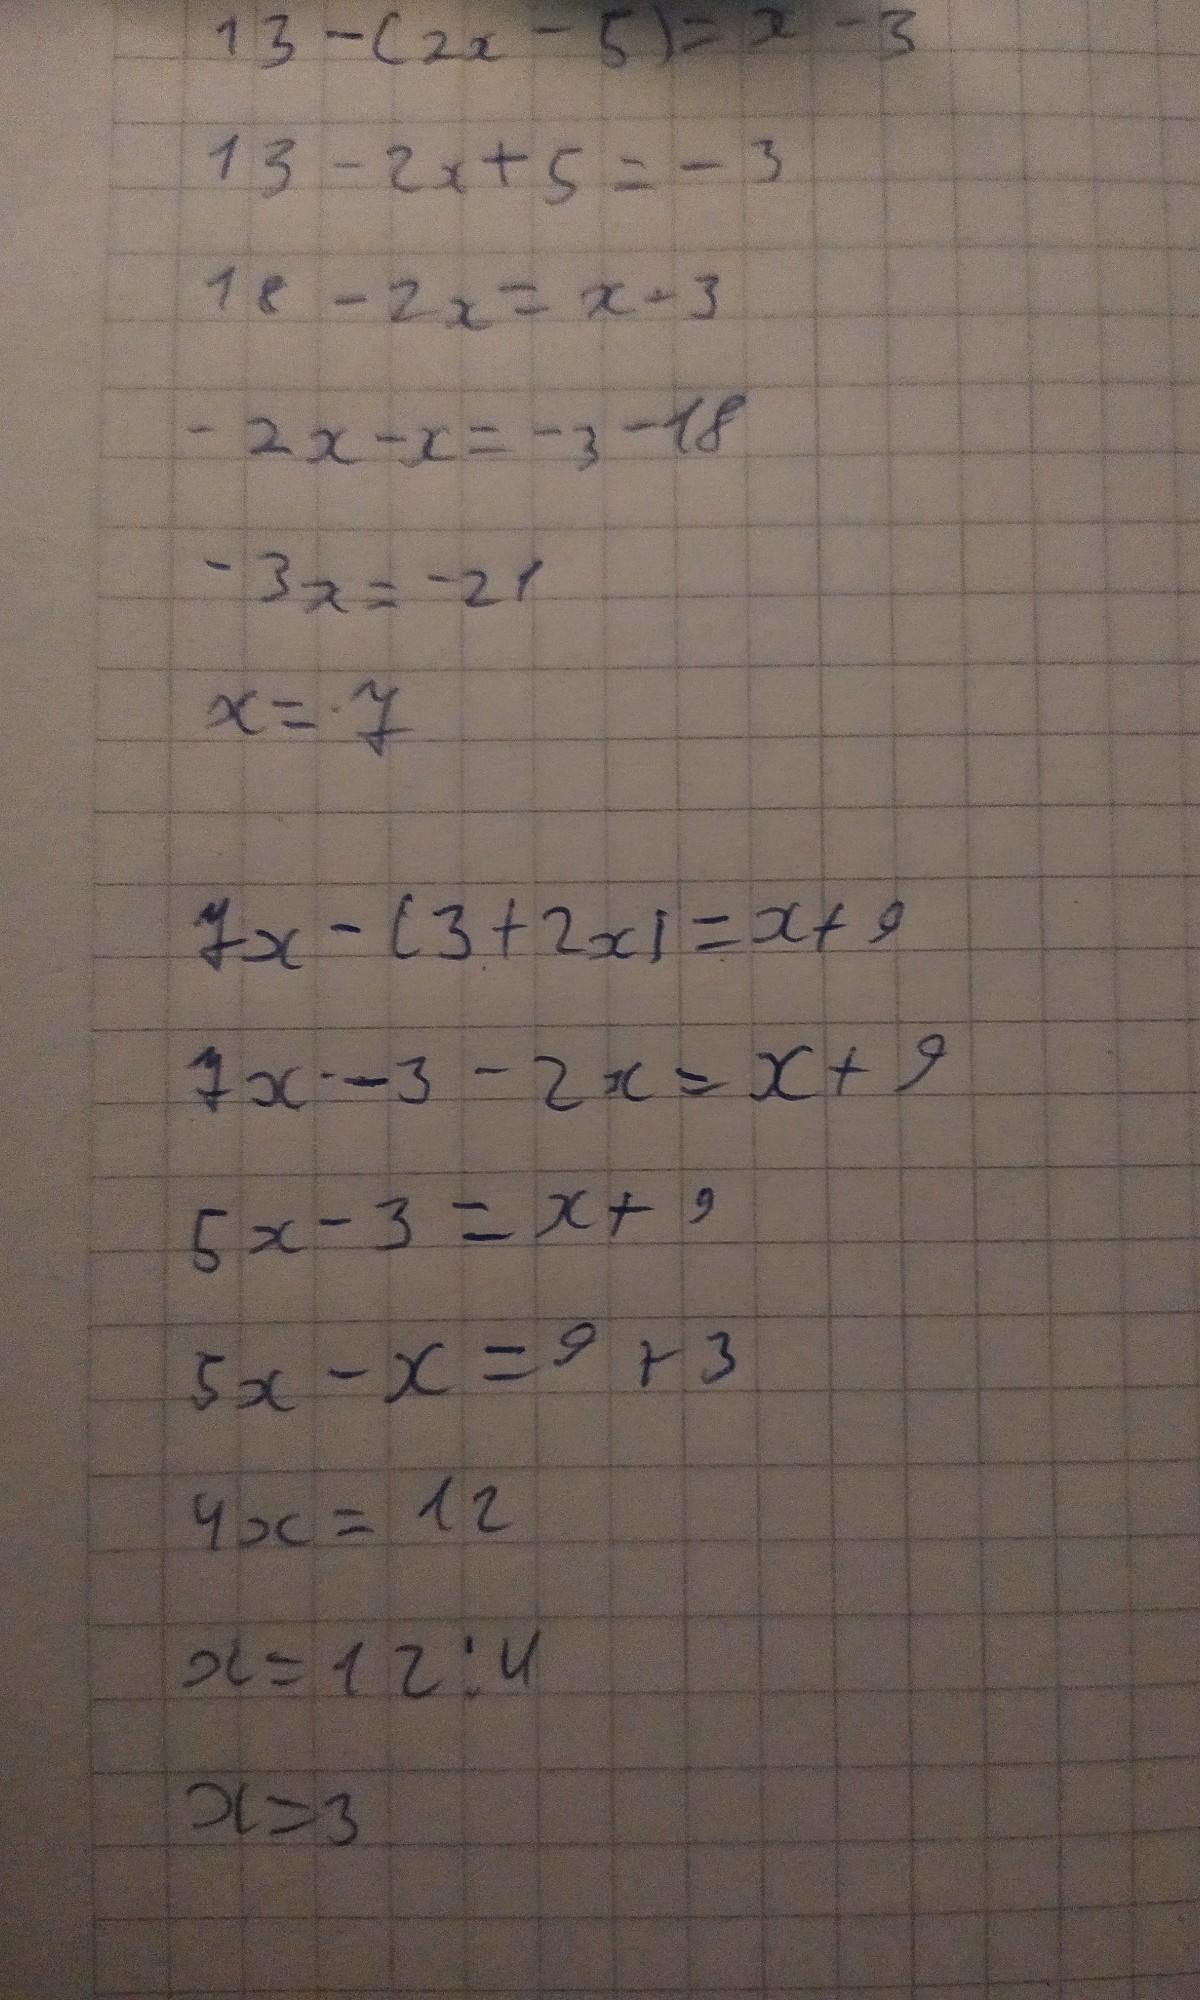 13 - (2x - 5) = x - 3
13 - 2x + 5 = - 3
18 - 2x = x - 3
- 2x - x = -3 - 18
- 3x = -21
x = 7
7x - (3 + 2x) = x + 9
7x - 3 - 2x = x + 9
5x - 3 = x + 9
5x - x = 9 + 3
4x = 12
x = 12 : 4
x = 3